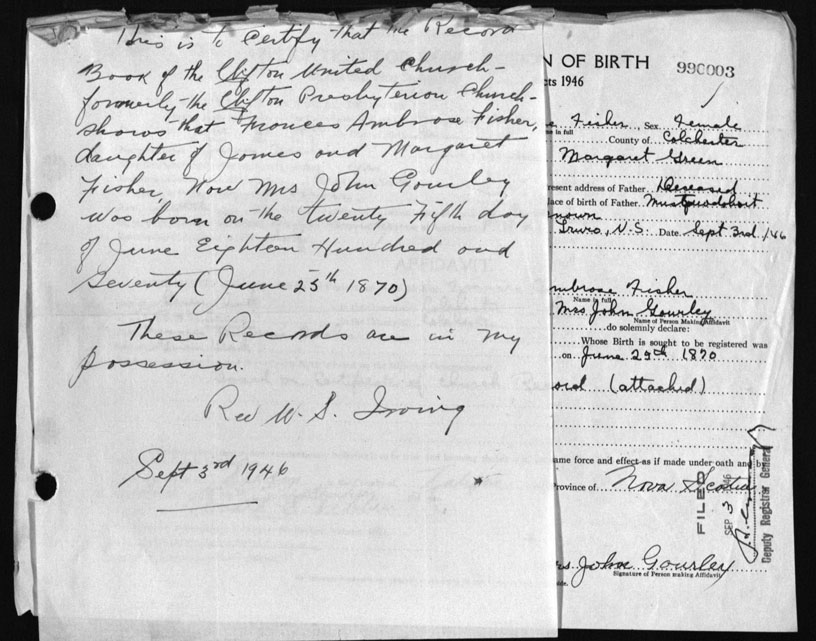 This is to Certify that the Record
Book of the Clifton United Church-
formerly the Clifton Presbyterian Church-
shows that Frances Ambrose Fisher,
daughter of James and Margaret
Fisher, Now Mrs John Gourley
was born on the twenty Fifth day
of June Eighteen Hundred and
Seventy (June 25th 1870)
These Records are in my
possession.
Rev W. S. Irving
Sept 3rd 1946
N OF BIRTH
990003
cts 1946
Fisher, Sex Female
e in full
County of Colchester
Margaret Green
resent address of Father Deceased
lace of birth of Father Musquodoboit
nown
Truro, N.S. Date Sept 3rd /46
AFFIDAVIT
mbrose Fisher
Name in full
Mrs John Gourley
Name of Person Making Affidavit
do solemnly declare:
Whose Birth is sought to be registered was
on June 25th 1870
ord (attached)
ame force and effect as if made under oath and by
Province of Nova Scotia
FILED
SEP 3
Deputy Registrar General
rs John Gourley
Signature of Person making Affidavit